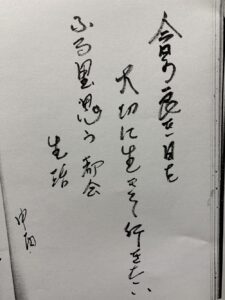 今日の良き日を
大切に生きて行きたい
ふる里思う 都会
生活